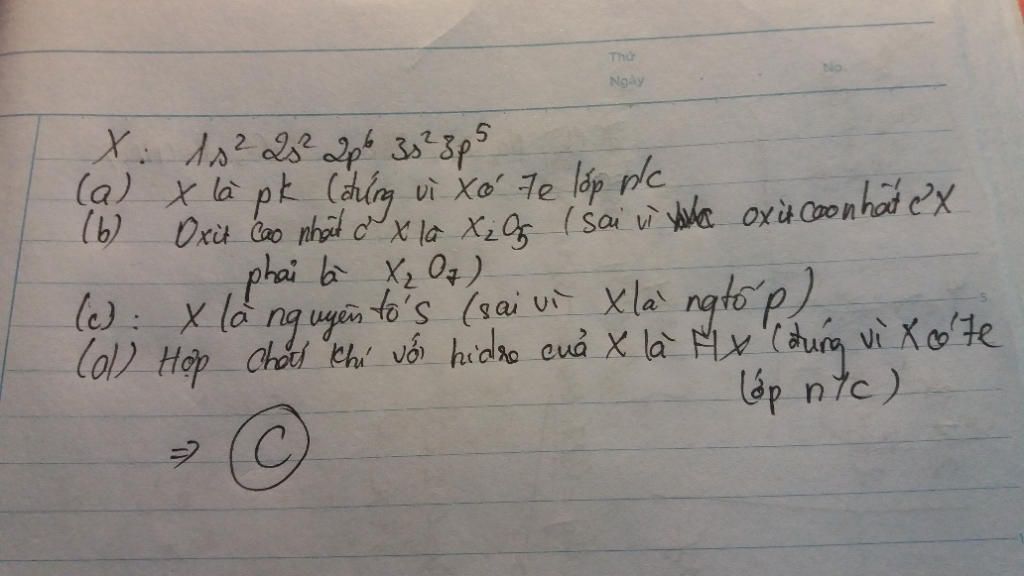 Thứ
Ngày No
X: 1s² 2s² 2p⁶ 3s² 3p⁵
(a) X là pk (đúng vì X có 7e lớp n/c
(b) Oxit cao nhất c' X là X₂O₅ (sai vì oxit cao nhất c' X
phải là X₂O₇)
(c): X là nguyên tố s (sai vì X là ngtố p)
(d) Hợp chất khí với hidro của X là HX (đúng vì X có 7e
lớp n/c)
⇒ C